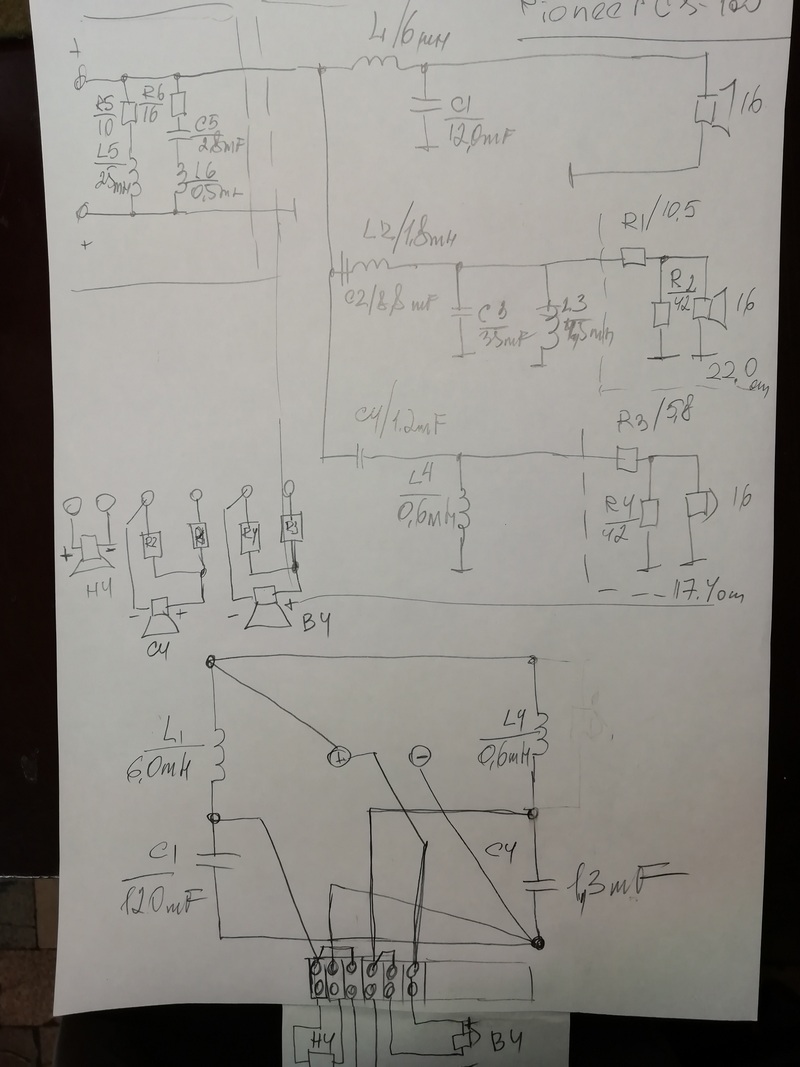 Pioneer CS-100
L1/6mH
+
R5/10
R6/16
C5/2,8mF
L5/25mH
L6/0,5mH
C1/12,0mF
16
+
L2/1,8mH
C2/8,8mF
C3/35mF
L3
R1/10,5
R2/42
16
22,0 om
C4/1,2mF
L4/0,6mH
R3/5,8
R4/42
16
17.4 om
+ -
НЧ
R2
- +
СЧ
R4 R3
- +
ВЧ
L1/6,0mH
+ -
L4/0,6mH
C1/120mF
C4
1,3mF
НЧ
ВЧ